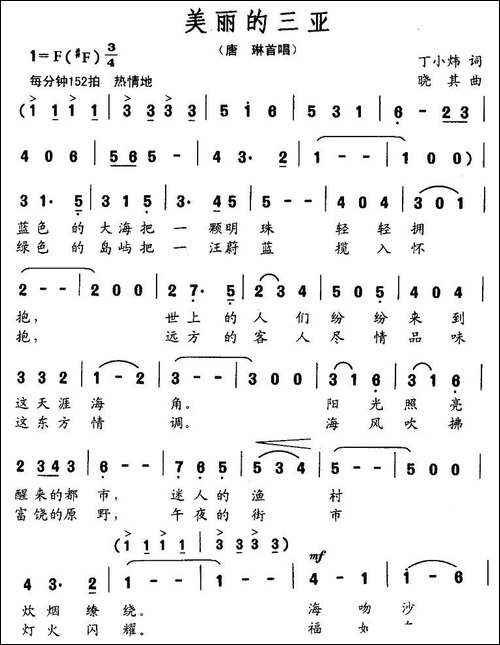 美丽的三亚
1=F(♯F) 3/4
(唐 琳首唱)
丁小炜 词
每分钟152拍 热情地
晓其 曲
(1 1 1 1 | 3 3 3 3 | 5 1 6 | 5 3 1 | 6 - 2 3 |
4 0 6 | 5 6 5 - | 4 3· 2 | 1 - - | 1 0 0) |
3 1· 5 | 3 1 5 | 3· 4 5 | 5 - - | 4 0 4 | 3 0 1 |
蓝色 的 大海把 一 颗明 珠 轻 轻 拥
绿色 的 岛屿把 一 汪蔚 蓝 揽 入 怀
2 - - | 2 0 0 | 2 7· 5 | 2 3 4 | 5 0 5 | 4 0 4 |
抱, 世上 的 人 们 纷 纷 来 到
抱, 远方 的 客 人 尽 情 品 味
3 3 2 | 1 - 2 | 3 - - | 3 0 0 | 3 1 6 | 3 1 6 |
这天涯 海 角。 阳 光 照 亮
这东方 情 调。 海 风 吹 拂
2 3 4 3 | 6 - - | 7 6 5 | 5 3 4 | 5 - - | 5 0 0 |
醒来的都 市, 迷人的 渔 村
富饶的原 野, 午夜的 街 市
(1 1 1 1 | 3 3 3 3)
mf
4 3· 2 | 1 - - | 1 0 0 | 3 4 5 | 1 - 6 |
炊烟 缭 绕。 海 吻 沙
灯火 闪 耀。 福 如